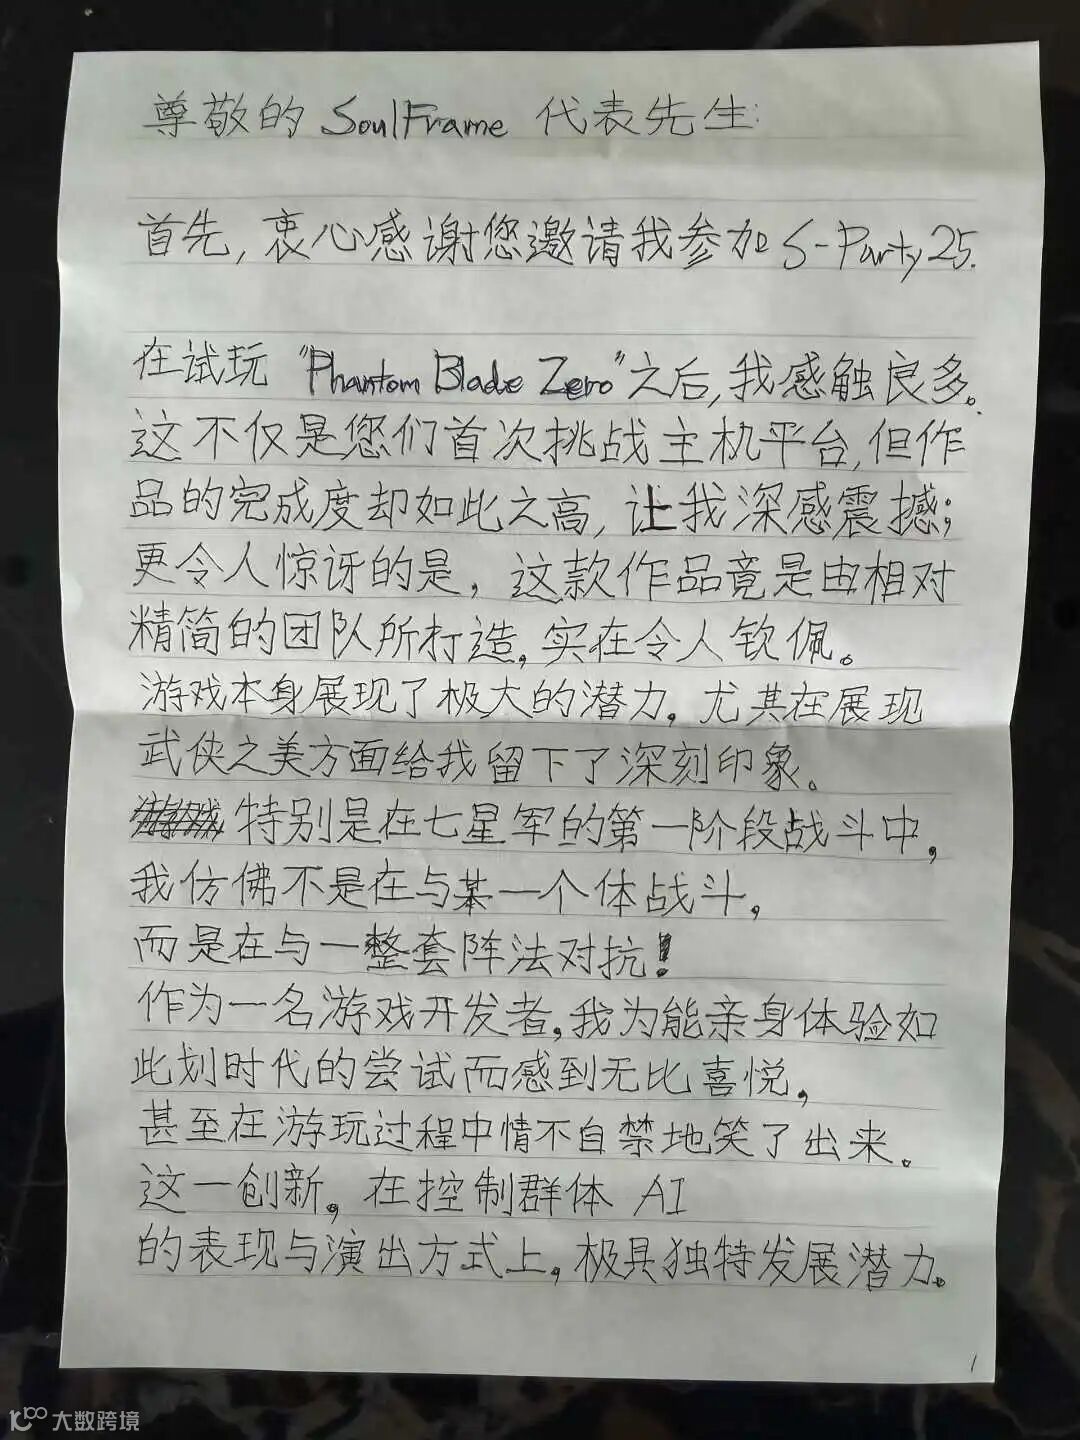 尊敬的 SoulFrame 代表先生:
首先, 衷心感谢您邀请我参加 S-Party25.
在试玩 "Phantom Blade Zero" 之后, 我感触良多。
这不仅是您们首次挑战主机平台, 但作
品的完成度却如此之高, 让我深感震撼;
更令人惊讶的是, 这款作品竟是由相对
精简的团队所打造, 实在令人钦佩。
游戏本身展现了极大的潜力, 尤其在展现
武侠之美方面给我留下了深刻印象。
特别是在七星军的第一阶段战斗中,
我仿佛不是在与某一个体战斗,
而是在与一整套阵法对抗!
作为一名游戏开发者, 我为能亲身体验如
此划时代的尝试而感到无比喜悦,
甚至在游玩过程中情不自禁地笑了出来。
这一创新, 在控制群体 AI
的表现与演出方式上, 极具独特发展潜力。
1
大数跨境